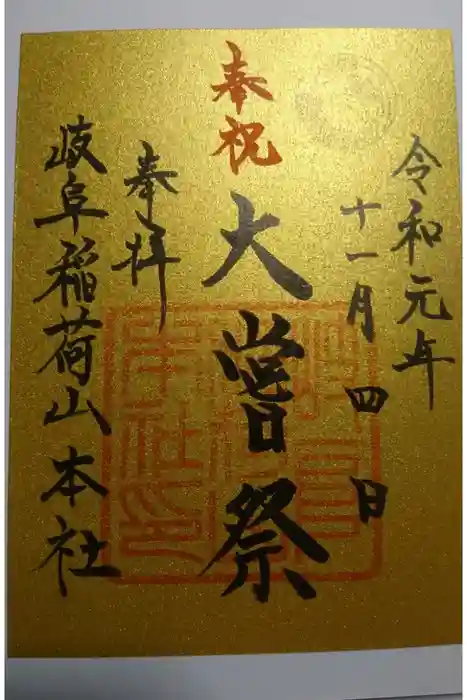 令和元年
十一月四日
奉祝
大嘗祭
奉拝
岐阜稲荷山本社